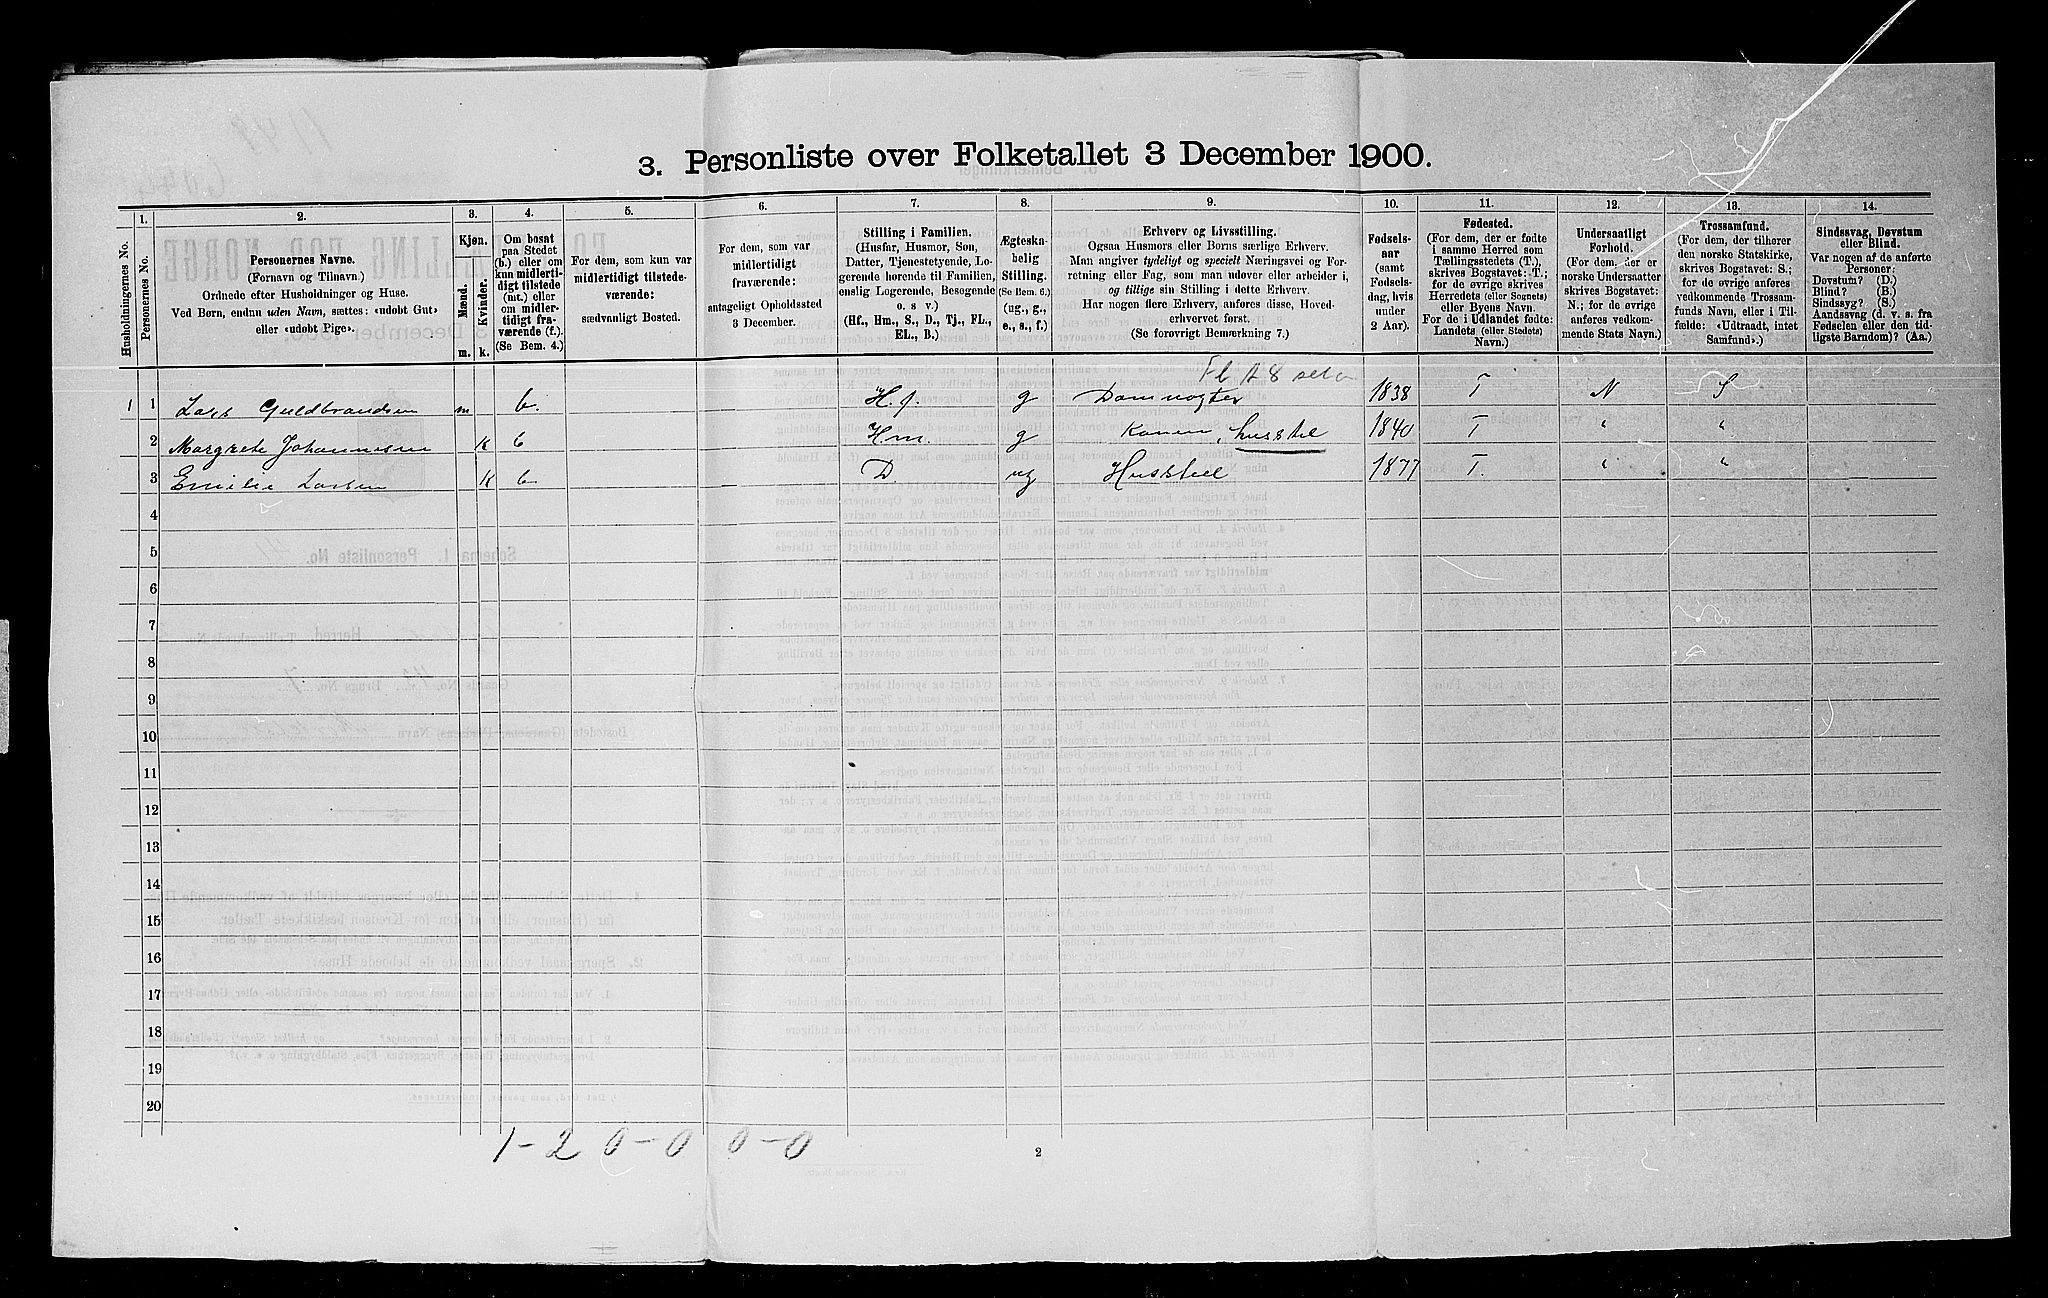 3. Personliste over Folketallet 3 December 1900.
1. 2. 3. 4. 5. 6. 7. 8. 9. 10. 11. 12. 13. 14.
Husholdningernes No.
Personernes No.
Personernes Navne.
(Fornavn og Tilnavn.)
Ordnede efter Husholdninger og Huse.
Ved Børn, endnu uden Navn, sættes: «udøbt Gut»
eller «udøbt Pige».
Kjøn.
Mænd.
Kvinder.
m. k.
Om bosat
paa Stedet
(b.) eller om
kun midlerti-
digt tilstede
(mt.) eller
om midler-
tidigt fra-
værende (f.).
(Se Bem. 4.)
For dem, som kun var
midlertidigt tilstede-
værende:
sædvanligt Bosted.
For dem, som var
midlertidigt
fraværende:
antageligt Opholdssted
3 December.
Stilling i Familien.
(Husfar, Husmor, Søn,
Datter, Tjenestetyende, Lo-
gerende hørende til Familien,
enslig Logerende, Besøgende
o. s v.)
(Hf., Hm., S., D., Tj., FL.,
EL., B.)
Ægteska-
belig
Stilling.
(Se Bem. 6.)
(ug., g.,
e., s., f.)
Erhverv og Livsstilling.
Ogsaa Husmors eller Børns særlige Erhverv.
Man angiver tydeligt og specielt Næringsvei og For-
retning eller Fag, som man udøver eller arbeider i,
og tillige sin Stilling i dette Erhverv.
Har nogen flere Erhverv, anføres disse, Hoved-
erhvervet først.
(Se forøvrigt Bemærkning 7.)
Fødsels-
aar
(samt
Fødsels-
dag, hvis
under
2 Aar).
Fødested.
(For dem, der er fødte
i samme Herred som
Tællingsstedets (T.),
skrives Bogstavet: T.;
for de øvrige skrives
Herredets (eller Sognets)
eller Byens Navn.
For de i Udlandet fødte:
Landets (eller Stedets)
Navn.)
Undersaatligt
Forhold.
(For dem, der er
norske Undersaatter
skrives Bogstavet:
N.; for de øvrige
anføres vedkom-
mende Stats Navn.)
Trossamfund.
(For dem, der tilhører
den norske Statskirke,
skrives Bogstavet: S.;
for de øvrige anføres
vedkommende Trossam-
funds Navn, eller i Til-
fælde: «Udtraadt, intet
Samfund».)
Sindssvag, Døvstum
eller Blind.
Var nogen af de anførte
Personer:
Døvstum? (D.)
Blind? (B.)
Sindssyg? (S.)
Aandssvag (d. v. s. fra
Fødselen eller den tid-
ligste Barndom)? (Aa.)
1 1 Lars Guldbrandsen m b. H.f. g Damvogter 1838 T N S
2 Margrete Johannesen k b Hm. g Konen, husstel 1840 T " "
3 Emilie Larsen k b D. ug Husstell 1877 T. " "
4
5
6
7
8
9
10
11
12
13
14
15
16
17
18
19
20
1-2 0-0 0-0
2